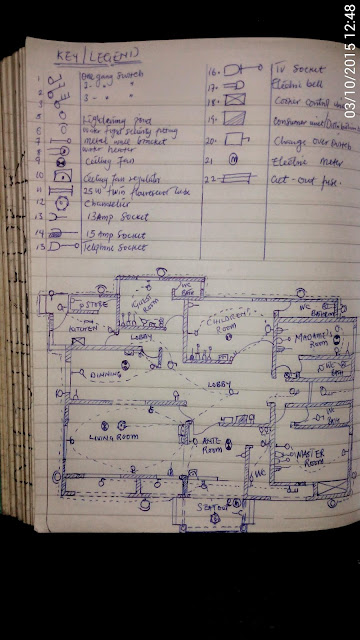 KEY/LEGEND
1 One gang switch
2 2- " "
3 3- " "
5 Lightening point
6 water tight security fitting
7 metal wall bracket
8 water heater
9 Ceiling Fan
10 Ceiling fan regulator
11 25W twin flourescent tube
12 Chandelier
13 13Amp Socket
14 15 Amp Socket
15 Telephone Socket
16. TV Socket
17. Electric bell
18. Cooker Control
19. Consumer unit/Distribution
20. Change over switch
21 Electric Meter
22 Cut-out fuse.
STORE
KITCHEN
GUEST ROOM
WC BATH
CHILDREN'S ROOM
WC
LOBBY
MADAM'S ROOM
DINNING
LOBBY
WC
LIVING ROOM
ANTE-ROOM
WC
MASTER ROOM
WC
SEATOUT
03/10/2015 12:48